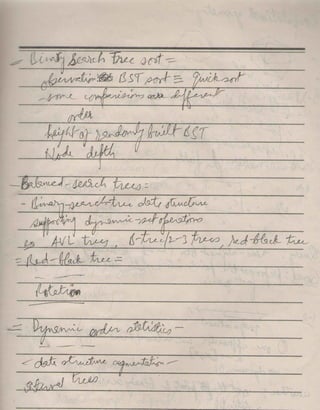 - Binary Search Tree sort =
observation BST sort ≡ Quick sort
- some comparisions are different
order
height of randomly built BST
Node depth
- Balanced-search trees:-
- Binary-search-tree data structure
supporting dynamic-set operations
AVL trees, B-tree/2-3 trees, red-black tree
= Red-black tree =
Rotation
= Dynamic order statistics -
- data structure augmentation -
interval trees